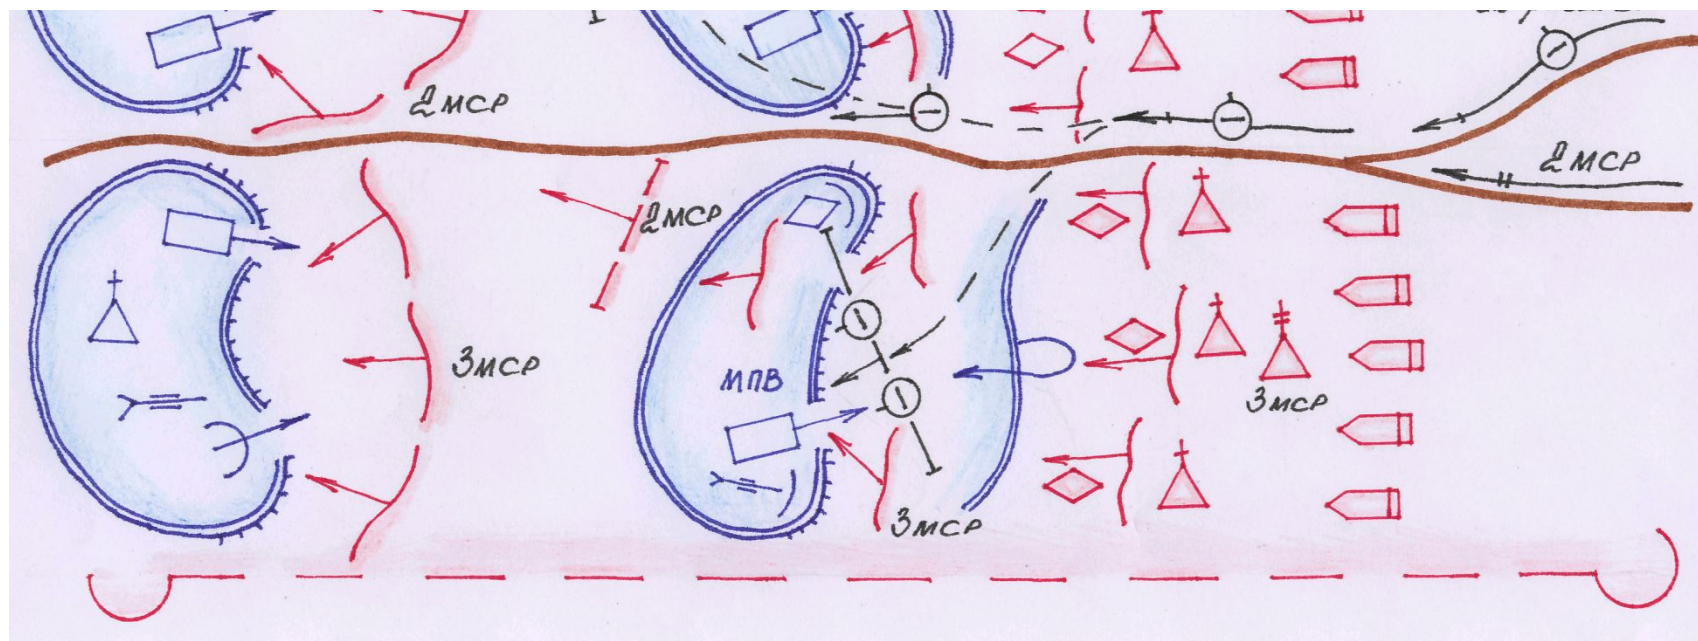 2 МСР
2 МСР
2 МСР
3 МСР
МПВ
3 МСР
3 МСР